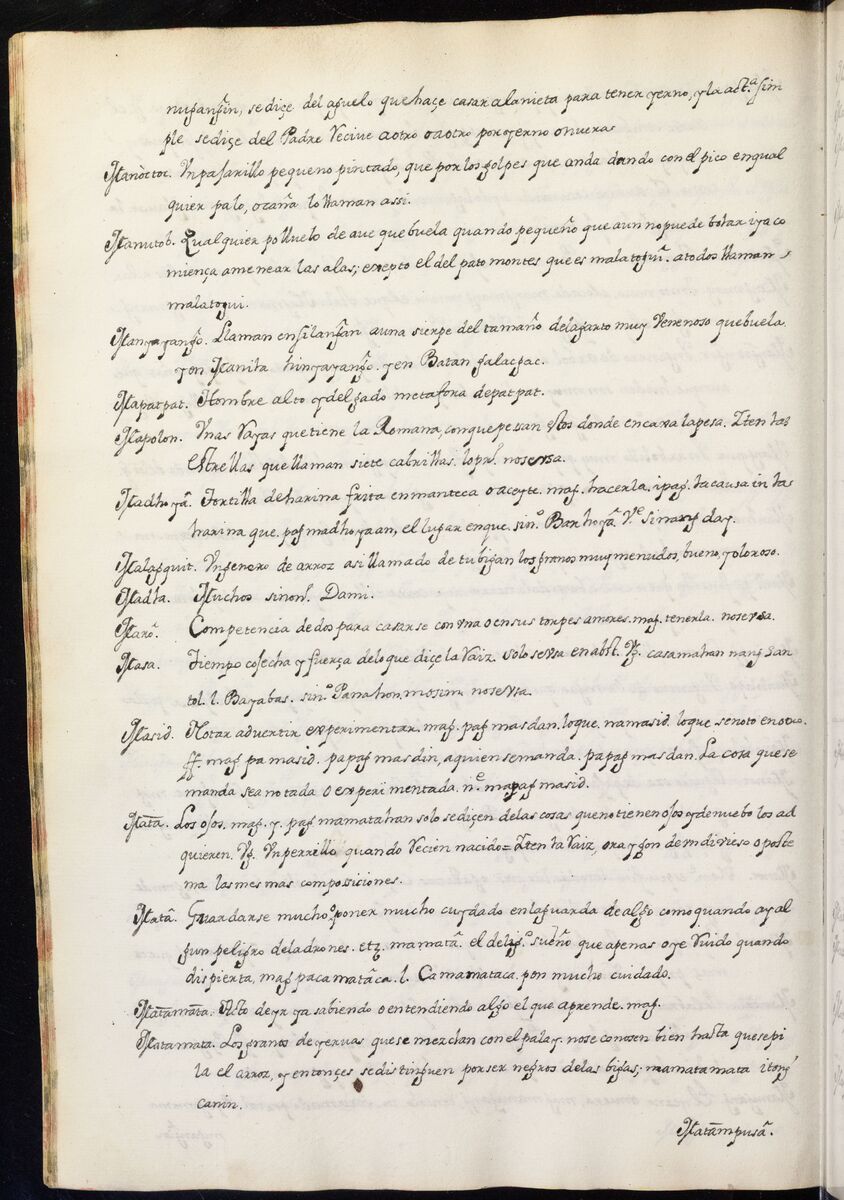 nugangin, se diçe del aguelo que haçe casar a la nieta para tener yerno, y la act.ª sim
ple se diçe del Padre Recive a otro o a otro por yerno o nuera
Manòctoc. Vn pasarillo pequeño pintado, que por los golpes que anda dando con el pico en qual
quier palo, o caña lo llaman assi.
Manutob. Qualquier polluelo de aue que buela quando pequeño que aun no puede bolar i ya co
miença a menear las alas; excepto el del pato montes que es malatogui. a todos llaman
malatogui.
Manyayango. Llaman en silangan a una sierpe del tamaño de lagarto muy Venenoso que buela.
y en Manila hinyayango. y en Batan galacgac.
Mapatpat. Hombre alto y delgado metafora de patpat.
Mapolon. Vnas Rayas que tiene la Romana, con que pessan donde encaxa la pesa. Iten las
estrellas que llaman siete cabrillas. lo prº. no se vsa.
Madhoya. Tortilla de harina frita en manteca o aceyte. mag. hacerla. ipag. la causa in la
harina que. pagmadhoyaan, el lugar en que. sin.º Barhoya. V.e sinang day.
Malagquit. Vn genero de arroz asi llamado de tubigan los granos muy menudos, bueno, y oloroso.
Madla. Muchos sinon. Dami.
Maro. Competencia de dos para casarse con vna o en sus torpes amores. mag. tenerla. no se vsa.
Masa. Tiempo cosecha y fuerça de lo que diçe la Raiz. solo se vsa en abst. Vg. casamahan nang San
tol. l. Bayabas. sin.º Panahon. mosim no se vsa.
Masid. Notar advertir experimentar. mag. pagmasdan. lo que. namasid. lo que se noto en otro.
ff. magpamasid. papagmasdin, a quien se manda. papagmasdan. La cosa que se
manda sea notada o experimentada. n.e mapagmasid.
Mata. Los ojos. mag. y. pagmamatahan solo se diçen de las cosas que no tienen ojos y de nuebo los ad
quieren. Vg. Vn perrillo quando Recien nacido = Iten la Raiz, ora y gon de vn divieso o poste
ma las mesmas composiciones.
Mata. Guardarse mucho, poner mucho cuydado en la guarda de algo como quando ay al
gun peligro de ladrones. etc. mamata. el de lig.º sueño que apenas oye Ruido quando
dispierta, magpacamataca. l. Camamataca. pon mucho cuidado.
Matamata. Acto de yr ya sabiendo o entendiendo algo el que aprende. mag.
Matamata. Los granos de yeruas que se mezclan con el palay. no se conosen bien hasta que se pi
la el arroz, y entonçes se distinguen por ser negros de las bigas; mamatamata itong
canin.
Matampusa.